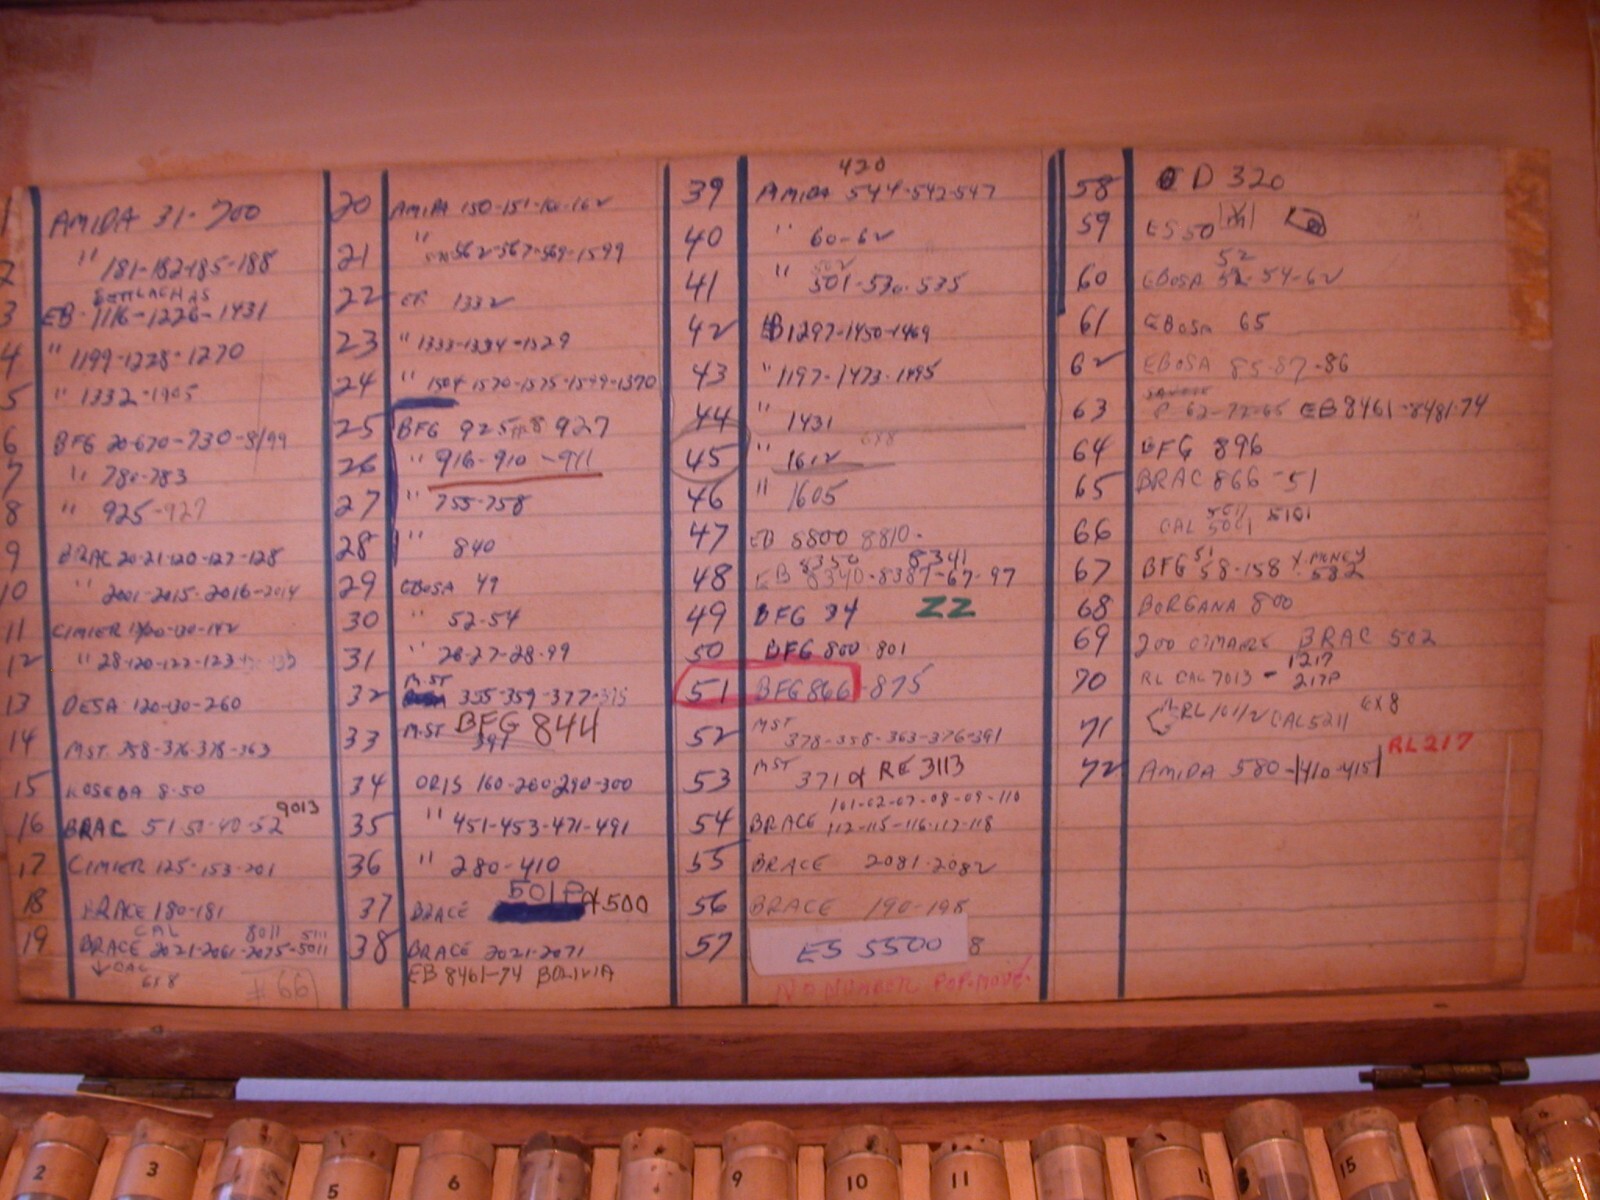 1 AMIDA 31-700
2 " 181-182-185-188
3 EB 1116-1226-1431
4 " 1199-1228-1270
5 " 1332-1905
6 BFG 20-670-730-8/99
7 " 780-783
8 " 925-927
9 BRAC 20-21-120-127-128
10 " 2001-2015-2016-2014
11 CIMIER
12 " 28-120-122-123
13 DESA 120-130-260
14 MST. 358-376-378-363
15 ROSEBA 8-50
9013
16 BRAC 51-50-40-52
17 CIMIER 125-153-201
18 BRACE 180-181
CAL 8011 5111
19 BRACE 2021-2061-2075-5011
CAL
658
#661
20 AMIDA 150-151-
21 " 562-567-569-1599
22 EB 1332
23 " 1333-1334-1529
24 " 1504 1570-1575-1599-1370
25 BFG 925 927
26 " 916-910-911
27 " 755-758
28 " 840
29 EBOSA 49
30 " 52-54
31 " 26-27-28-99
32 MST 355-359-377-375
33 MST BFG 844
391
34 ORIS 160-260-290-300
35 " 451-453-471-491
36 " 280-410
501P
37 BRACE & 500
38 BRACE 2021-2071
EB 8461-74 BOLIVIA
420
39 AMIDA 544-542-547
40 " 60-62
502
41 " 501-530-535
42 EB 1297-1450-1469
43 " 1197-1473-1495
44 " 1431
688
45 " 1612
46 " 1605
47 EB 8800 8810-
8350 8341
48 EB 8340-8387-67-97
49 BFG 34 ZZ
50 BFG 800 801
51 BFG 866-875
52 MST 378-358-363-376-391
53 MST 371 & RE 3113
101-02-07-08-09-110
54 BRACE 112-115-116-117-118
55 BRACE 2081-2082
56 BRACE 190-198
57 ES 5500 8
NO NUMBER
58 D 320
59 ES 50
52
60 EBOSA 52-54-62
61 EBOSA 65
62 EBOSA 85-87-86
63 P 62-72-65 EB 8461-8481-74
64 BFG 896
65 BRAC 866-51
5011 5101
66 CAL 5001
51
67 BFG 58-158 582
68 BORGANA 800
69 200 BRAC 502
1217
70 RL CAL 7013 - 217P
71 RL 101/2 CAL 5211
RL 217
72 AMIDA 580-410-415
2 3 5 6 9 10 11 15